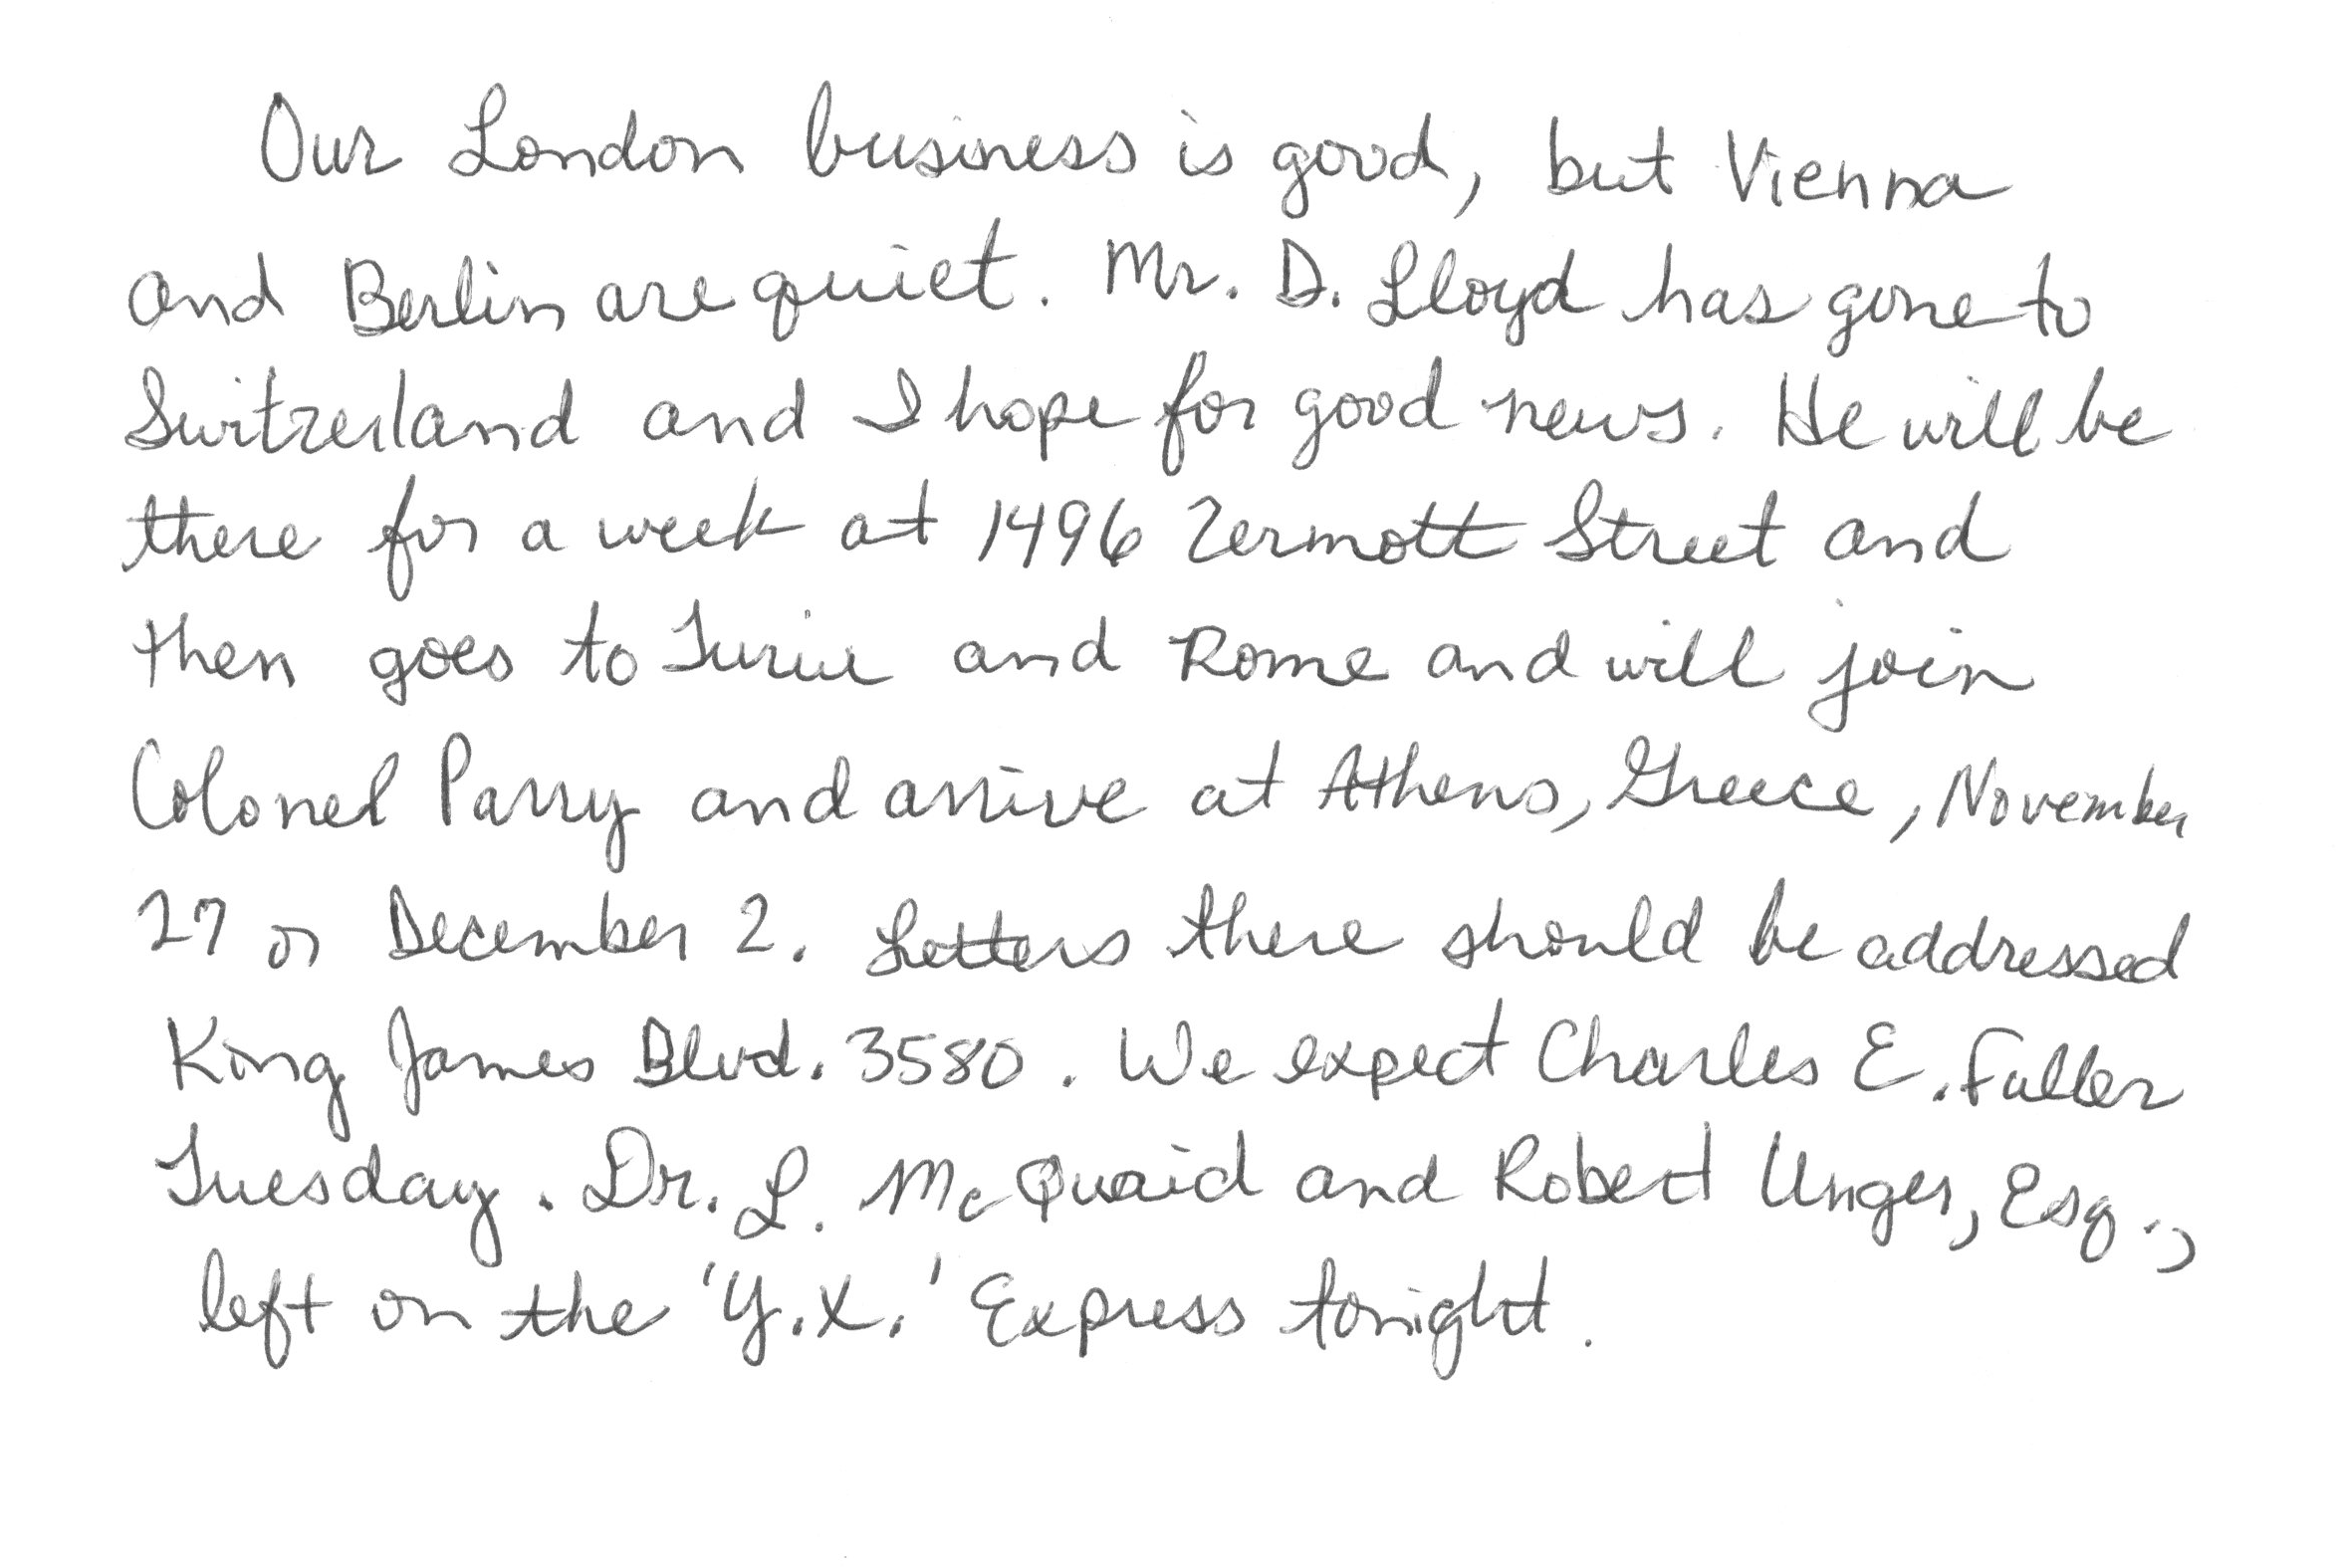 Our London business is good, but Vienna
and Berlin are quiet. Mr. D. Lloyd has gone to
Switzerland and I hope for good news. He will be
there for a week at 1496 Zermott Street and
then goes to Turin and Rome and will join
Colonel Parry and arrive at Athens, Greece, November
27 or December 2. Letters there should be addressed
King James Blvd. 3580. We expect Charles E. Fuller
Tuesday. Dr. L. McQuaid and Robert Unger, Esq.,
left on the 'Y.X.' Express tonight.